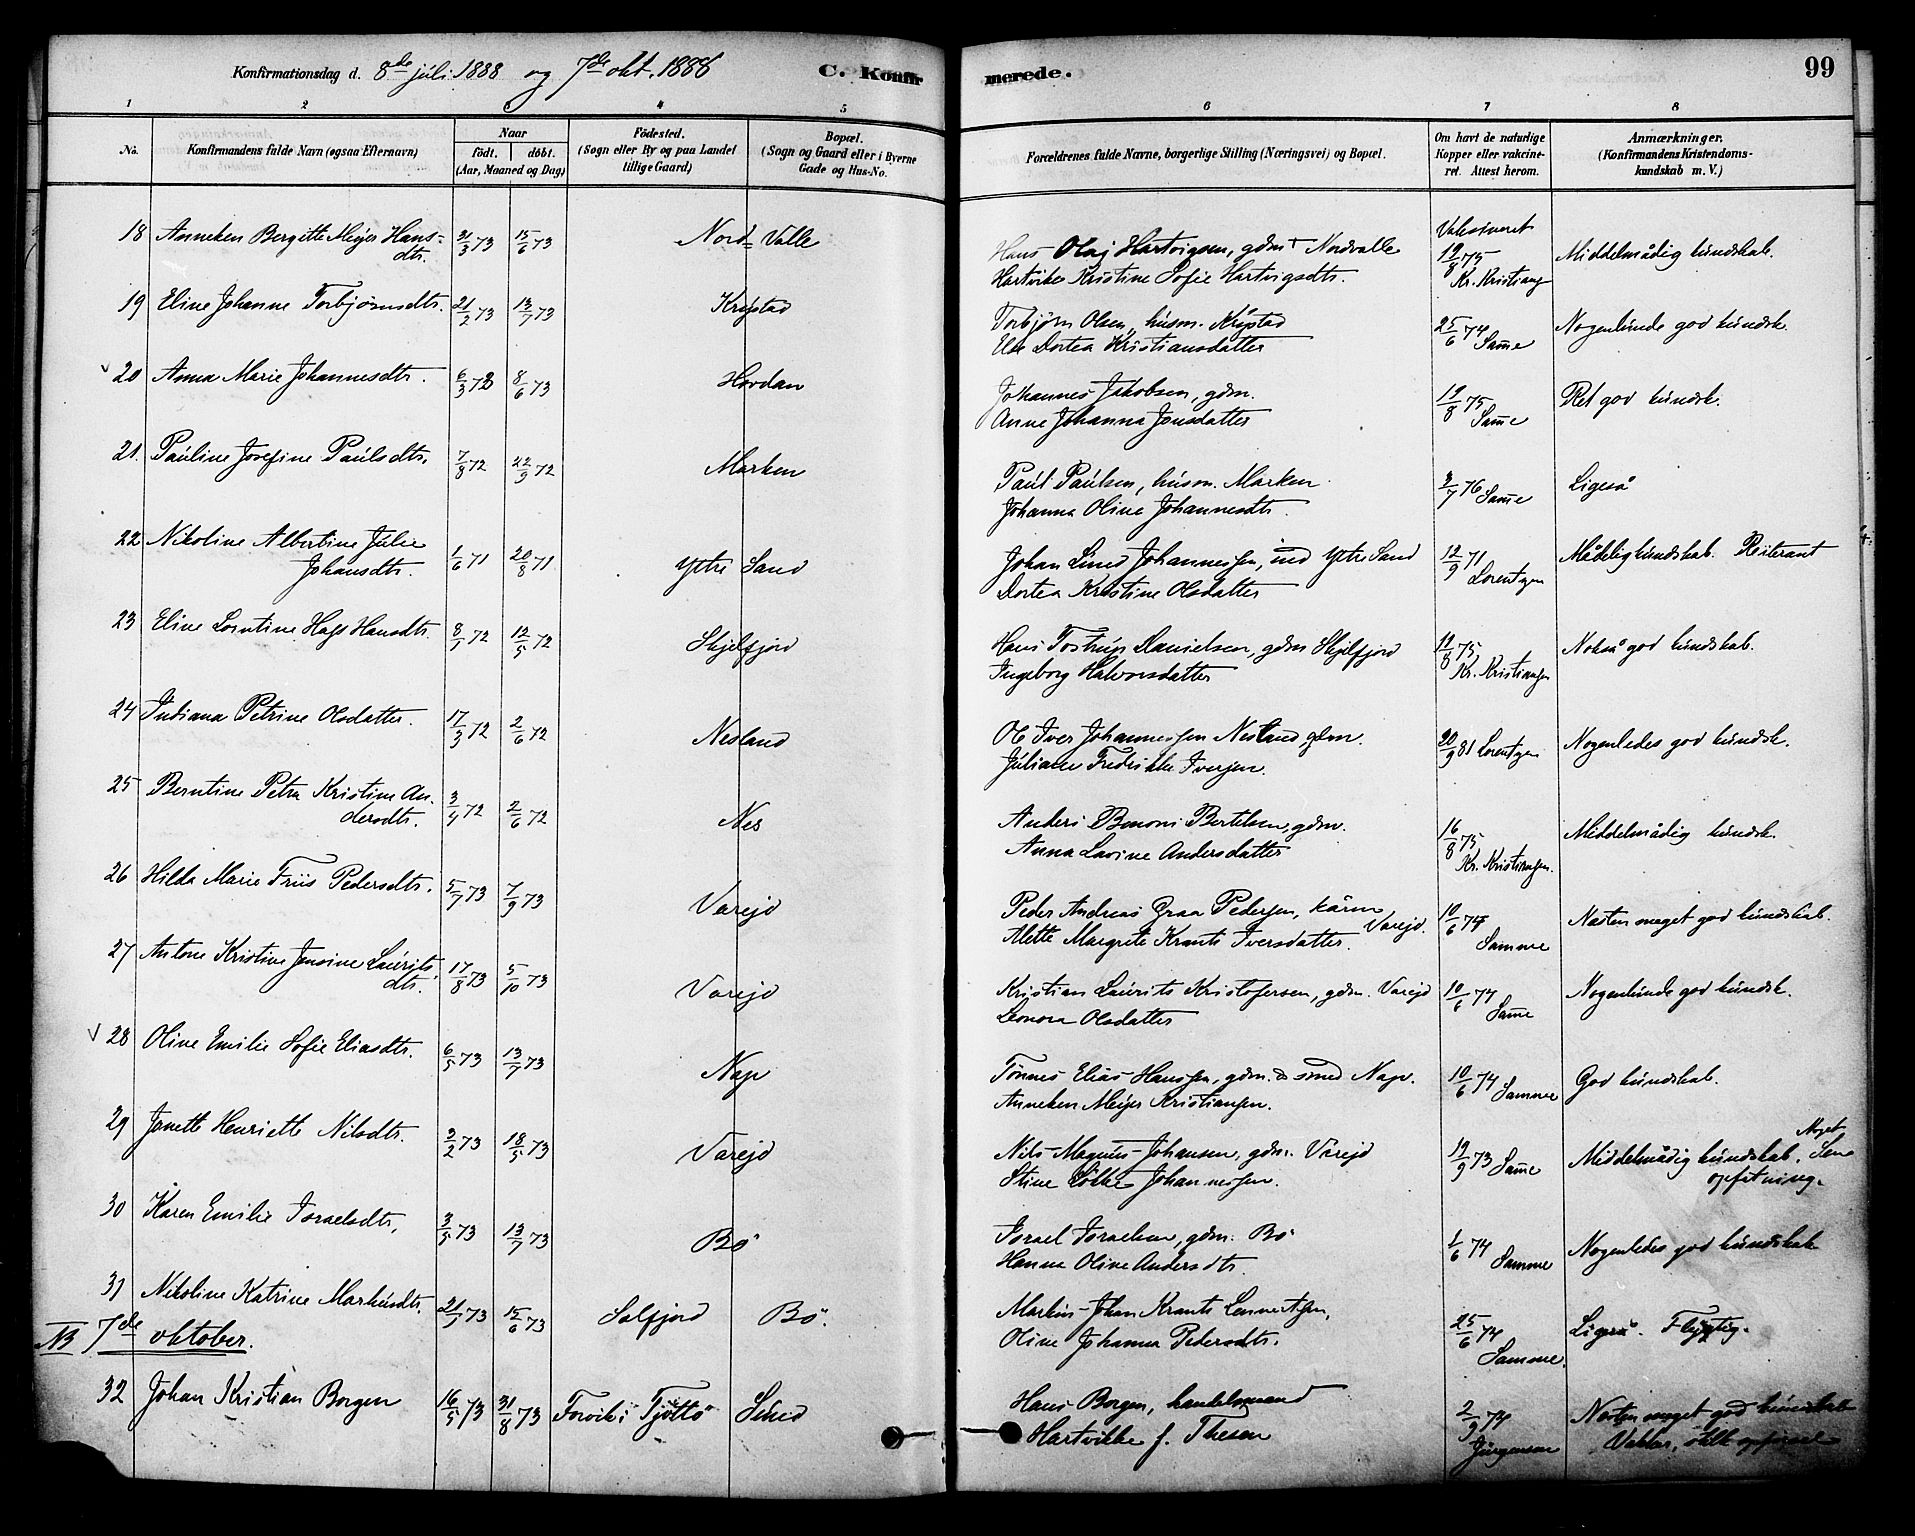 Konfirmationsdag d. 8de juli 1888 og 7de okt. 1888 C. Konfirmerede. 99
1 2 3 4 5 6 7 8
No. Konfirmandens fulde Navn (ogsaa Efternavn) Naar födt. döbt. (Aar, Maaned og Dag) Födested. (Sogn eller By og paa Landet tillige Gaard) Bopæl. (Sogn og Gaard eller i Byerne Gade og Hus-No. Forældrenes fulde Navne, borgerlige Stilling (Næringsvei) og Bopæl. Om havt de naturlige Kopper eller vakcineret. Attest herom. Anmærkninger. (Konfirmandens Kristendomskundskab m. V.)
18 Anneken Bergitte Meyer Hans- 31/3 73 15/6 73 Nord-Valle Hans Olaj Hartvigsen, gdm Nordvalle 19/8 75 Middelmådig kundskab.
dtr. Hartvikke Kristine Sofie Hartvigsdtr. Kr. Kristians
19 Eline Johanne Torbjørnsdtr. 21/2 73 13/7 73 Kristad Torbjørn Olsen, husm. Kristad 25/6 74 Same Nogenlunde god kundsk.
Else Dortea Kristiansdatter
20 Anna Marie Johannesdtr. 6/3 73 8/6 73 Hordan Johannes Jakobsen, gdm. 19/8 75 Same Ret god kundsk.
Anne Johanna Jonsdatter
21. Pauline Josefine Paulsdtr. 7/8 72 22/9 72 Marken Paul Paulsen, husm. Marken. 2/7 76 Same Ligeså
Johanna Oline Johannesdtr.
22 Nikoline Albertine Julie 1/6 71 20/8 71 Ytre Sand Johan Lund Johannessen, ind Ytre Sand 12/9 71 Mådelig kundskab. Reiterant
Johansdtr. Dortea Kristine Olsdatter Lorentzen
23 Eline Lorntine Hags Hansdtr. 8/1 72 12/5 72 Skjelfjord Hans Tostrup Danielsen, gdm Skjelfjord 19/8 75 Nokså god kundskab.
Ingeborg Halvorsdatter Kr. Kristiansen
24 Indiana Petrine Olsdatter. 17/3 72 2/6 72 Nesland Ol Iver Johannessen Nesland, gdm. 20/9 81 Lorentzen Nogenledes god kundsk.
Juliane Fredrikke Iversen.
25 Berntine Petra Kristine An- 3/4 72 2/6 72 Nes Anders Benoni Bertelsen, gdm. 16/8 75 Middelmådig kundsk.
dersdtr. Anna Lavine Andersdatter Kr. Kristiansen.
26 Hilda Marie Friis Pedersdtr. 5/7 73 7/9 73 Varejd Peder Andreas Graa Pedersen, kårm 10/6 74 Næsten meget god kundskab.
Mette Margrete Krants Iversdatter. Varejd. Samme
27 Antone Kristine Jensine Laurits- 17/8 73 5/10 73 Varejd Kristian Laurits Kristofersen, gdm. Varejd 10/6 74 Nogenlunde god kundsk.
dtr. Leonora Olsdatter Same
28 Oline Emilie Sofie Eliasdtr. 6/5 73 13/7 73 Nap Tønnes Elias Hanssen, gdm. & smed Nap. 10/6 74 Samme God kundskab.
Anneken Meijer Kristiansen.
29 Janette Henriette Nilsdtr. 2/2 73 18/5 73 Varejd Nils Magnus Johansen, gdm. Varejd 19/9 73 Same Middelmådig kundskab. Noget Sen
Stine Løkke Johannessen. opfatning.
30 Karen Emilie Israelsdtr. 3/5 73 13/7 73 Bø Israel Israelsen, gdm. Bø 1/6 74 Samme Nogenledes god kundskab
Hanna Oline Andersdtr.
31 Nikoline Katrine Markusdtr. 21/1 73 15/6 73 Solfjord Bø. Markus Johan Krants Lennertsen, 25/6 74 Ligeså. Flygtig.
Oline Johanna Pedersdtr. Samme.
NB 7de oktober.
32 Johan Kristian Borgen 16/5 73 31/8 73 Forvik i Tjøttø Sund Hans Borgen, handelsmand 2/9 74 Næsten meget god kundskab
Hartvikke f. Thesen Jürgensen Vakker, stille opførsel